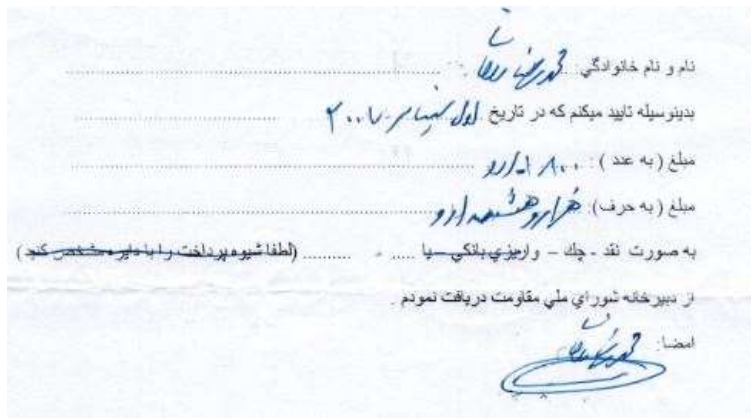 نام و نام خانوادگي: محمدرضا روحانی
بدینوسیله تایید میکنم که در تاریخ اول سپتامبر ۲۰۰۷
مبلغ ( به عدد ) : ۱۸۰۰ ارو
مبلغ ( به حرف): هزار و هشتصد ارو
به صورت نقد - چك – واريزي بانکي - يا ..... (لطفا شيوه پرداخت را با دايره مشخص کنيد )
از دبیرخانه شوراي ملي مقاومت دریافت نمودم .
امضا: محمدرضا روحانی